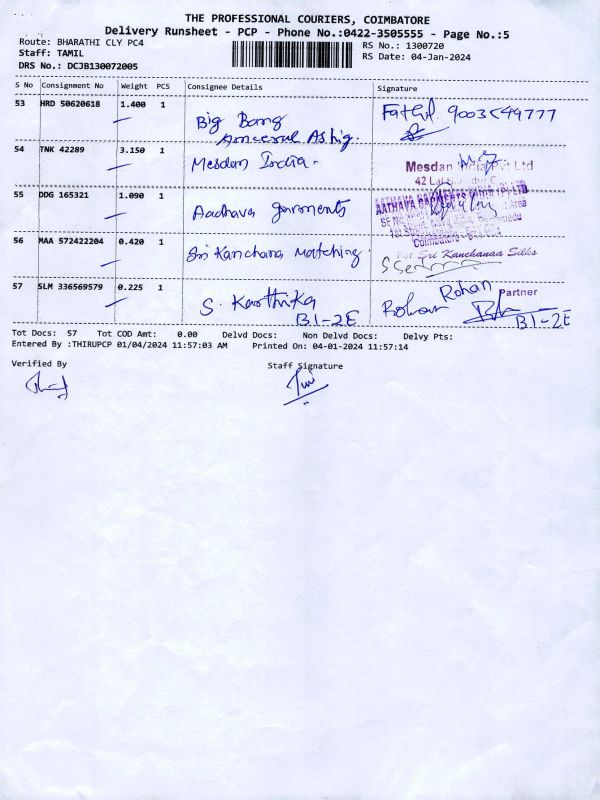 THE PROFESSIONAL COURIERS, COIMBATORE
Delivery Runsheet - PCP - Phone No.:0422-3505555 - Page No.:5
Route: BHARATHI CLY PC4 RS No.: 1300720
Staff: TAMIL RS Date: 04-Jan-2024
DRS No.: DCJB130072005
S No Consignment No Weight PCS Consignee Details Signature
53 HRD 50620618 1.400 1 Big Bang 9003549777
54 TNK 42289 3.150 1 Mesdan India. Mesdan India Pvt Ltd
42
55 DDG 165321 1.090 1 Aadhava garments AATHAVA GARMENTS INDIA (P) LTD
Coimbatore
56 MAA 572422204 0.420 1 Sri Kanchana Matching For Sri Kanchanaa Silks
57 SLM 336569579 0.225 1 S. Karthika Rohan Rohan Partner
B1-2E B1-2E
Tot Docs: 57 Tot COD Amt: 0.00 Delvd Docs: Non Delvd Docs: Delvy Pts:
Entered By :THIRUPCP 01/04/2024 11:57:03 AM Printed On: 04-01-2024 11:57:14
Verified By Staff Signature